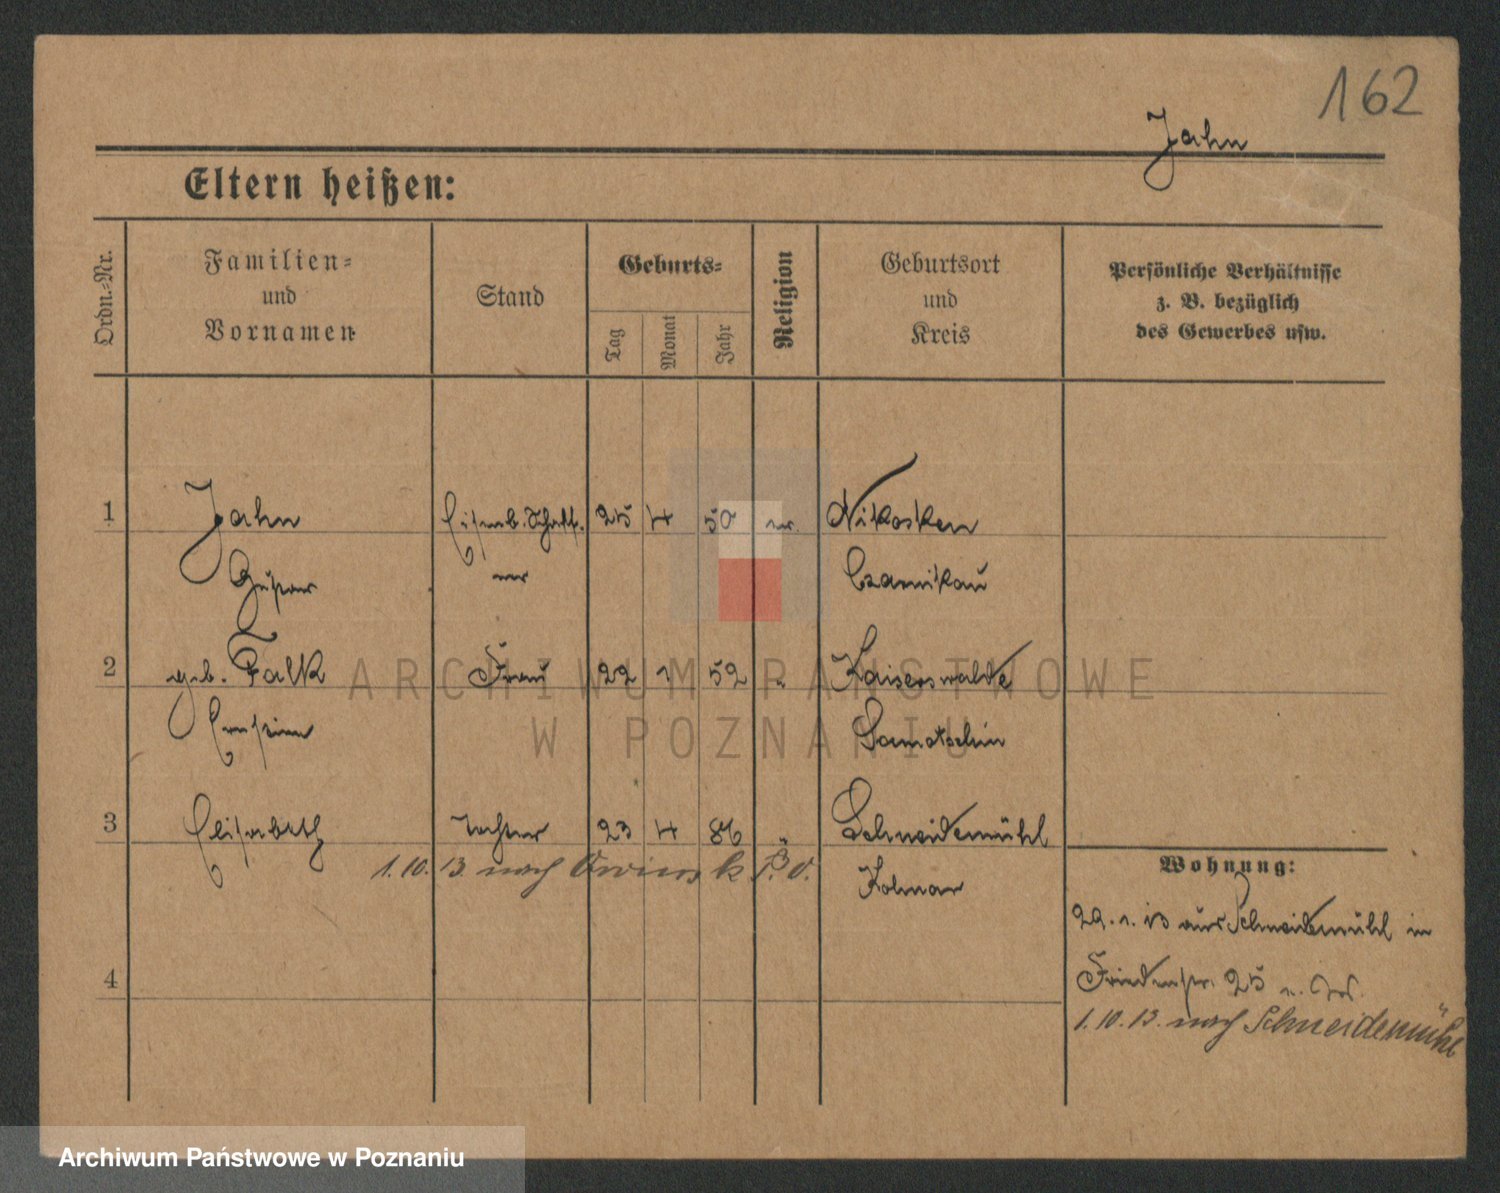 162
Jahn
Eltern heißen:
Ordn.-Nr.
Familien-
und
Vornamen
Stand
Geburts-
Tag
Monat
Jahr
Religion
Geburtsort
und
Kreis
Persönliche Verhältnisse
z. B. bezüglich
des Gewerbes usw.
1
Jahn
Eisenb. Schaff-
25 4 50 ev.
Gustav
ner
Czarnikau
2
geb. Falk
Frau
22 1 52 "
Kaiserswalde
Ernstine
Samotschin
3
Elisabeth
Tochter
23 4 86 "
Schneidemühl
1.10.13. nach Owinsk
Kolmar
Wohnung:
29.1.13 aus Schneidemühl in
4
Friedenstr. 25
1.10.13. nach Schneidemühl
ARCHIWUM PAŃSTWOWE
W POZNANIU
Archiwum Państwowe w Poznaniu